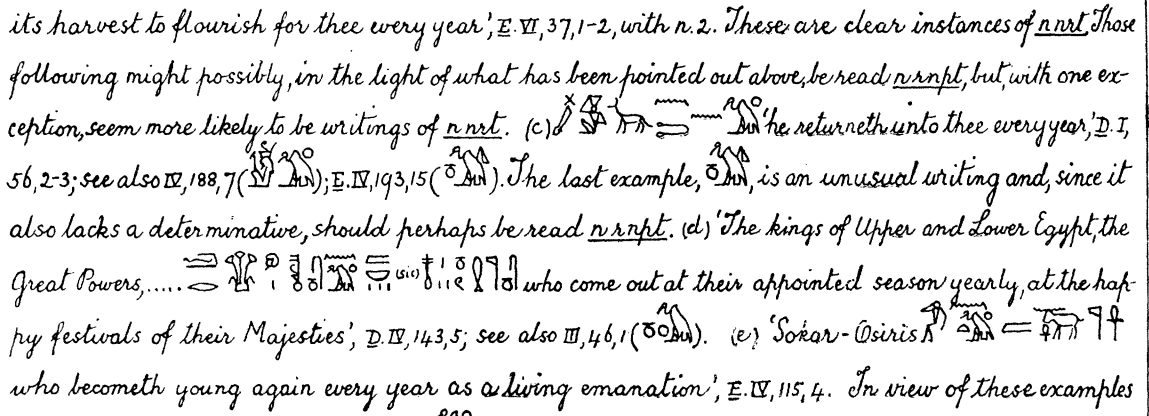 its harvest to flourish for thee every year', E. VI, 37, 1-2, with n. 2. These are clear instances of nnrt. Those
following might possibly, in the light of what has been pointed out above, be read nrnpt, but, with one ex-
ception, seem more likely to be writings of nnrt. (c) 'he returneth unto thee every year', D. I,
56, 2-3; see also IV, 188, 7 ( ); E. IV, 193, 15 ( ). The last example, , is an unusual writing and, since it
also lacks a determinative, should perhaps be read nrnpt. (d) 'The kings of Upper and Lower Egypt, the
Great Powers, ..... (sic) who come out at their appointed season yearly, at the hap-
py festivals of their Majesties', D. IV, 143, 5; see also III, 46, 1 ( ). (e) 'Sokar-Osiris
who becometh young again every year as a living emanation', E. IV, 115, 4. In view of these examples